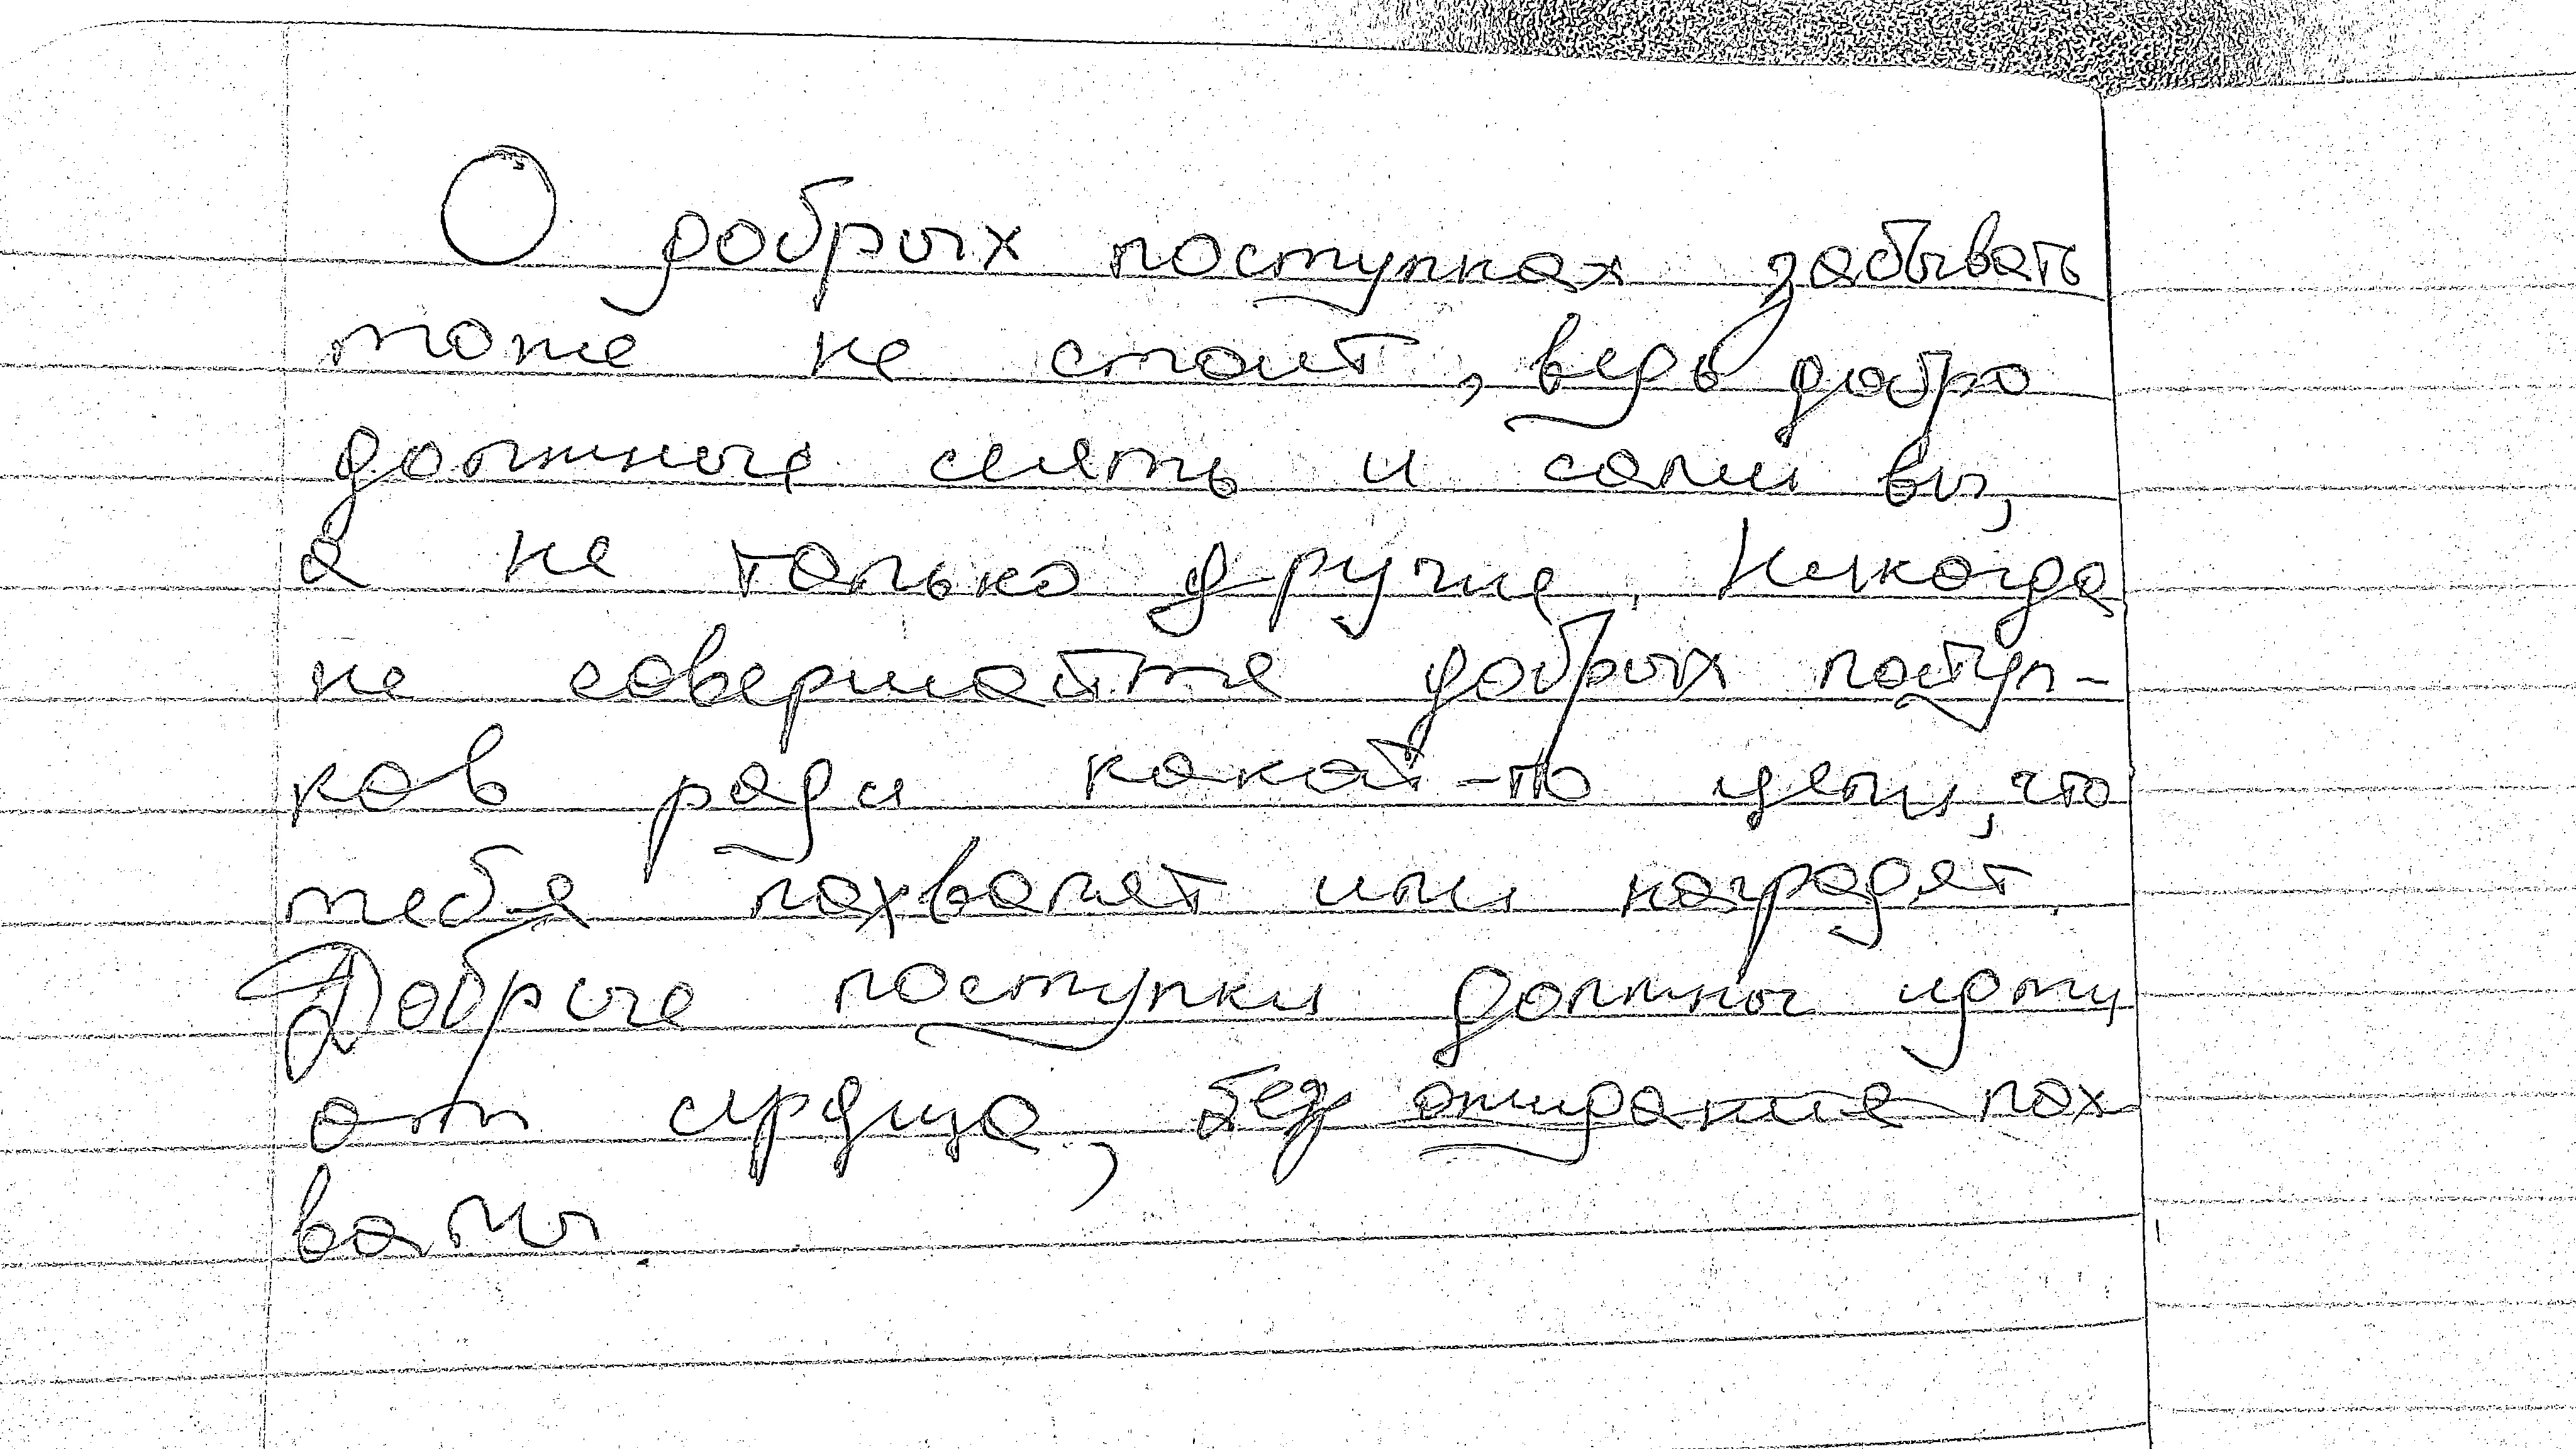 О добрых поступках забывать
тоже не стоит, ведь добро
должные сеять и сами вы,
а не только другие. Никогда
не совершайте добрых поступ-
ков ради какой-то цели, что
тебя похвалят или наградят.
Добрые поступки должны идти
от сердца, без ожирание пох
валы.